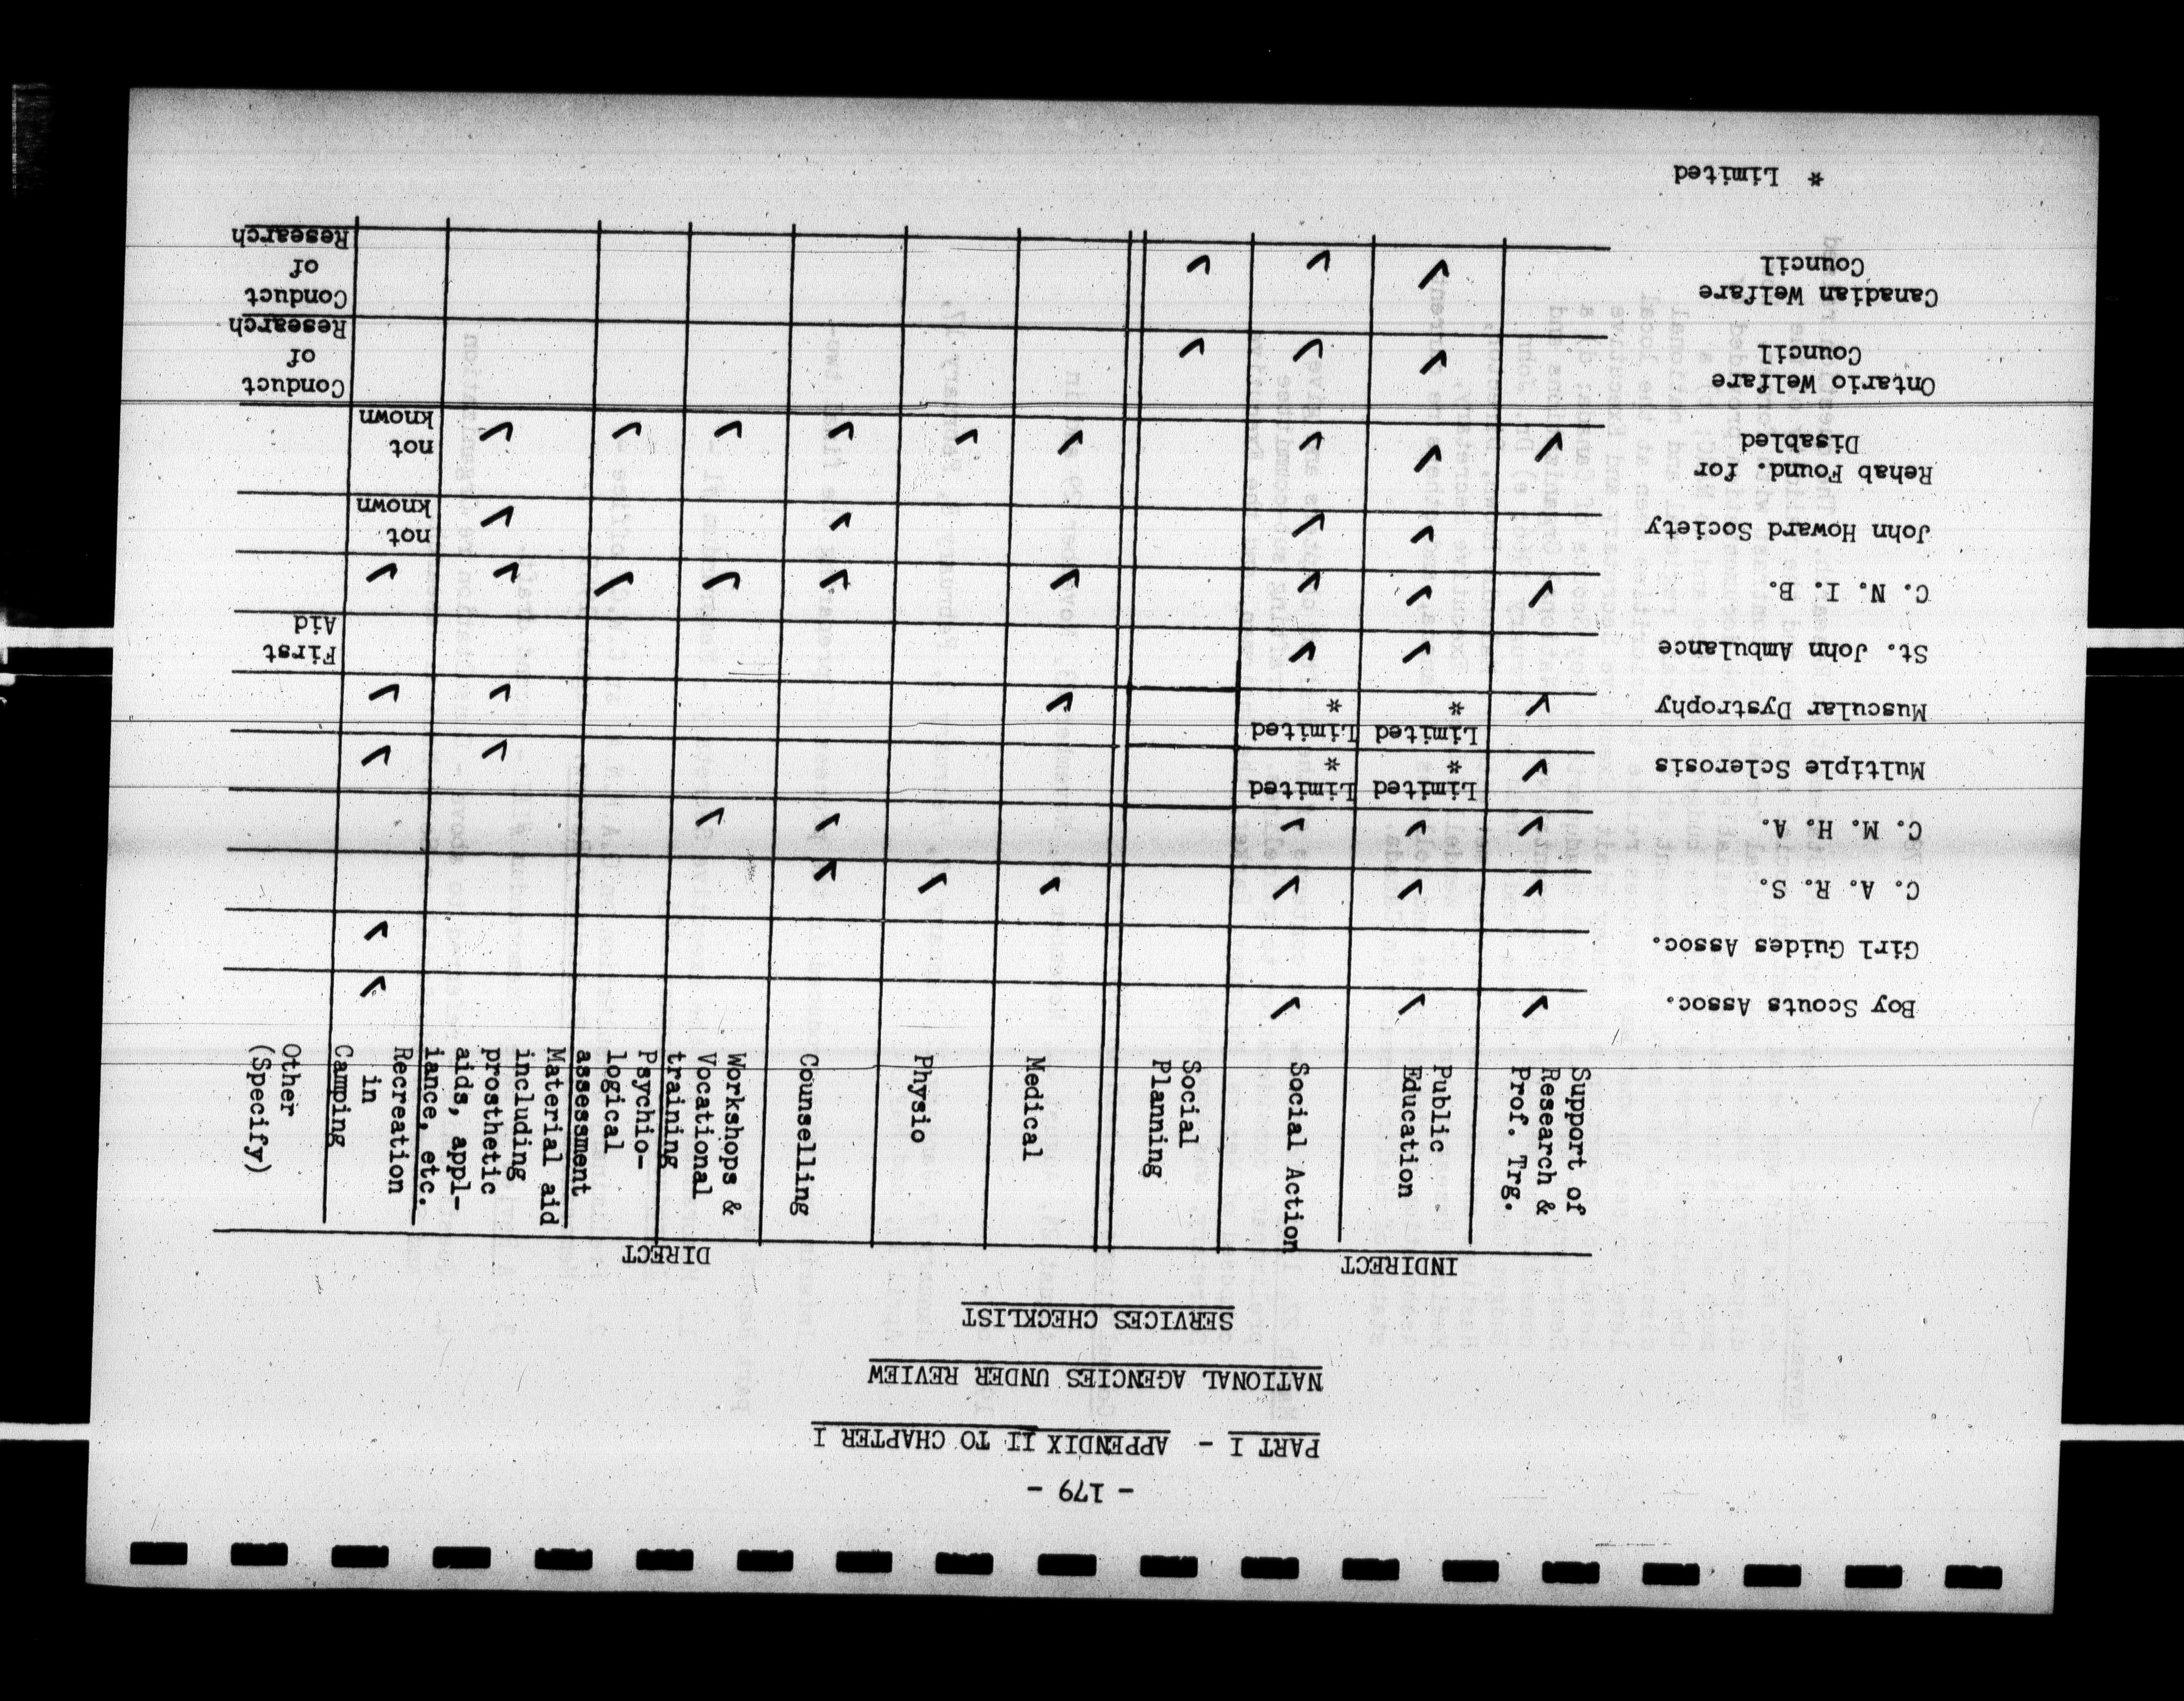 - 179 -
PART I - APPENDIX II TO CHAPTER I
NATIONAL AGENCIES UNDER REVIEW
SERVICES CHECKLIST
INDIRECT
DIRECT
Support of
Research &
Prof. Trg.
Public
Education
Social Action
Social
Planning
Medical
Physio
Counselling
Workshops &
Vocational
training
Psychio-
logical
assessment
Material aid
including
prosthetic
aids, appl-
iance, etc.
Recreation
in
Camping
Other
(Specify)
Boy Scouts Assoc. ✓ ✓ ✓ ✓
Girl Guides Assoc. ✓
C. A. R. S. ✓ ✓ ✓ ✓ ✓ ✓
C. M. H. A. ✓ ✓ ✓ ✓ ✓
Limited Limited
Multiple Sclerosis ✓ * * ✓ ✓
Limited Limited
Muscular Dystrophy ✓ * * ✓ ✓ ✓
St. John Ambulance ✓ ✓ First
Aid
C. N. I. B. ✓ ✓ ✓ ✓ ✓ ✓ ✓ ✓ ✓
John Howard Society ✓ ✓ ✓ ✓ not
known
Rehab Found. for
Disabled ✓ ✓ ✓ ✓ ✓ ✓ ✓ ✓ ✓ not
known
Ontario Welfare
Council ✓ ✓ ✓ Conduct
of
Research
Canadian Welfare
Council ✓ ✓ ✓ Conduct
of
Research
* Limited